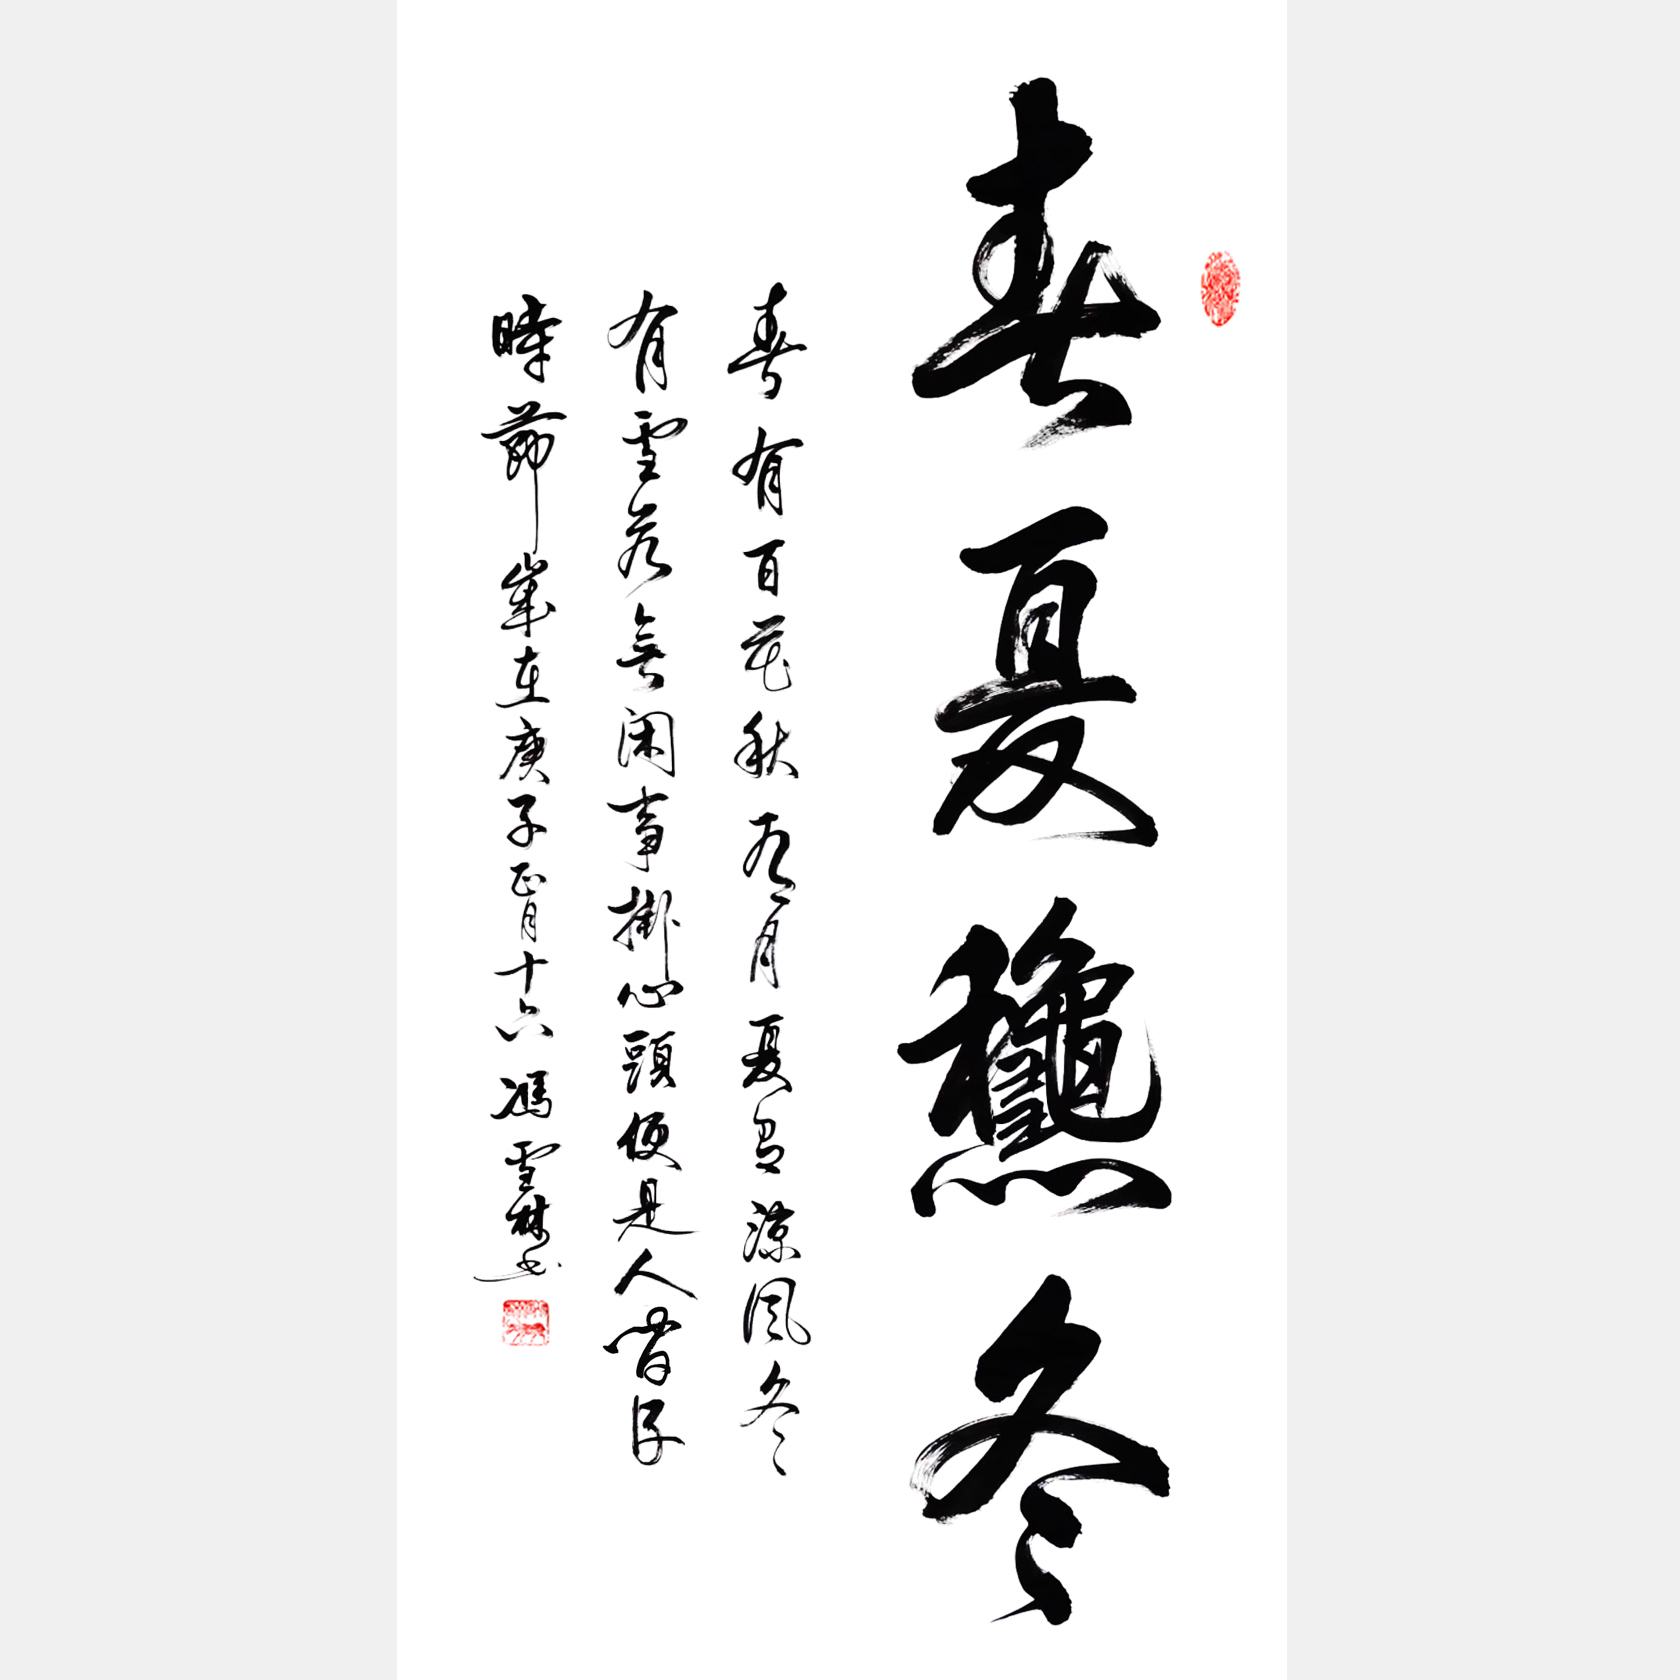 春夏龝冬
春有百花秋有月夏有涼風冬
有雪若無闲事掛心頭便是人間好
時節歲在庚子正月十六馮雪林书